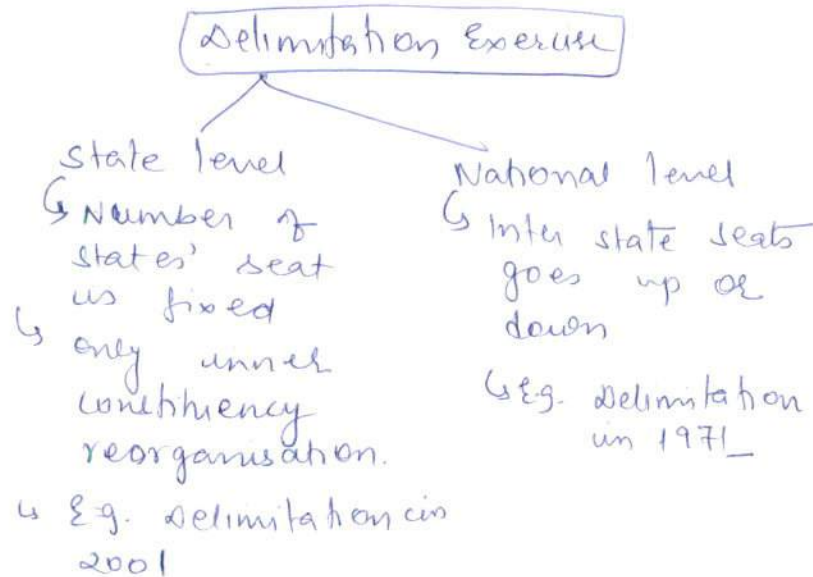 Delimitation Exercise
State level
↳ Number of
states' seat
is fixed
↳ only inner
constituency
reorganisation.
↳ E.g. Delimitation in
2001
National level
↳ Inter state seats
goes up or
down
↳ E.g. Delimitation
in 1971